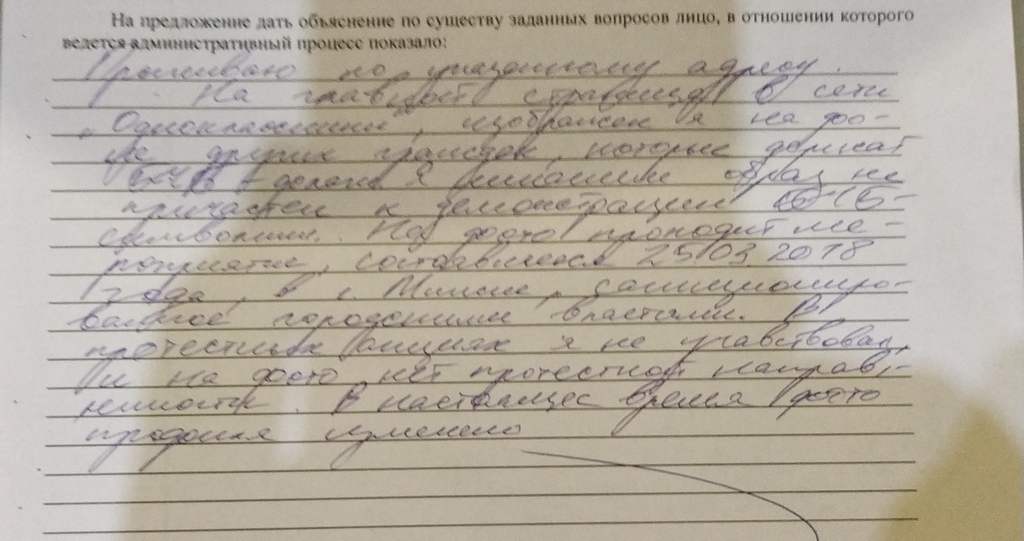 На предложение дать объяснение по существу заданных вопросов лицо, в отношении которого
ведется административный процесс показало:
Проживаю по указанному адресу.
На главной странице в сети
"Одноклассники", изображен я на фо-
не других граждан, которые держат
я никоим образ не
причастен к демонстрации
символики. На фото проходит ме-
роприятие, состоявшееся 25.03.2018
года, в г. Минске, санкциониро-
ванное городскими властями. В
протестных акциях я не учавствовал,
и на фото нет протестной направ-
ленности. В настоящее время фото
профиля изменено